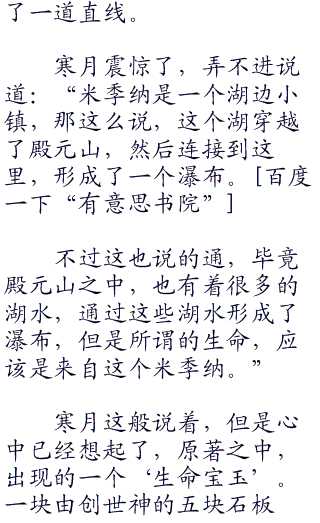 了一道直线。
寒月震惊了，弄不进说
道：“米季纳是一个湖边小
镇，那这么说，这个湖穿越
了殿元山，然后连接到这
里，形成了一个瀑布。[百度
一下“有意思书院”]
不过这也说的通，毕竟
殿元山之中，也有着很多的
湖水，通过这些湖水形成了
瀑布，但是所谓的生命，应
该是来自这个米季纳。”
寒月这般说着，但是心
中已经想起了，原著之中，
出现的一个‘生命宝玉’。
一块由创世神的五块石板